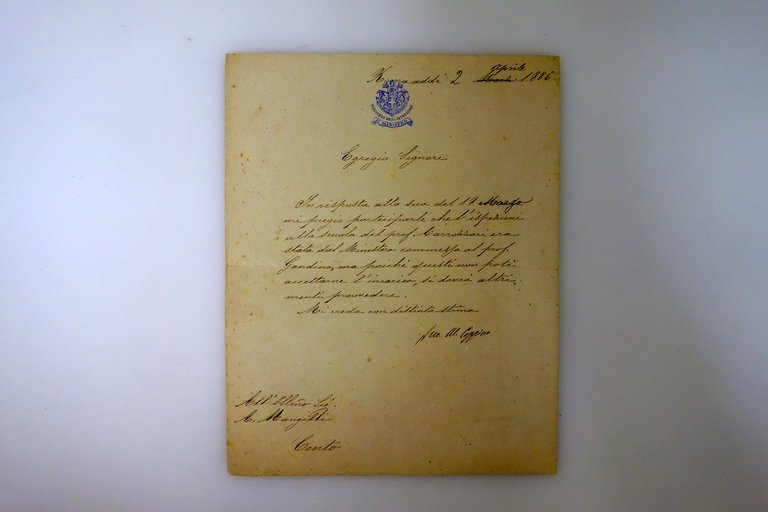 Roma addì 2 aprile 1886
MINISTERO DELL'ISTRUZIONE
IL MINISTRO
Egregio Signore
In risposta alla sua del 18 Marzo
mi pregio parteciparle che l'ispezione
alla scuola del prof. Carrozzari era
stata dal Ministro commessa al prof.
Gandino, ma poichè questi non potè
accettarne l'incarico, si dovrà altri-
menti provvedere.
Mi creda con distinta stima
M. Coppino
All'Illmo Sig.
A. Mangilli
Cento